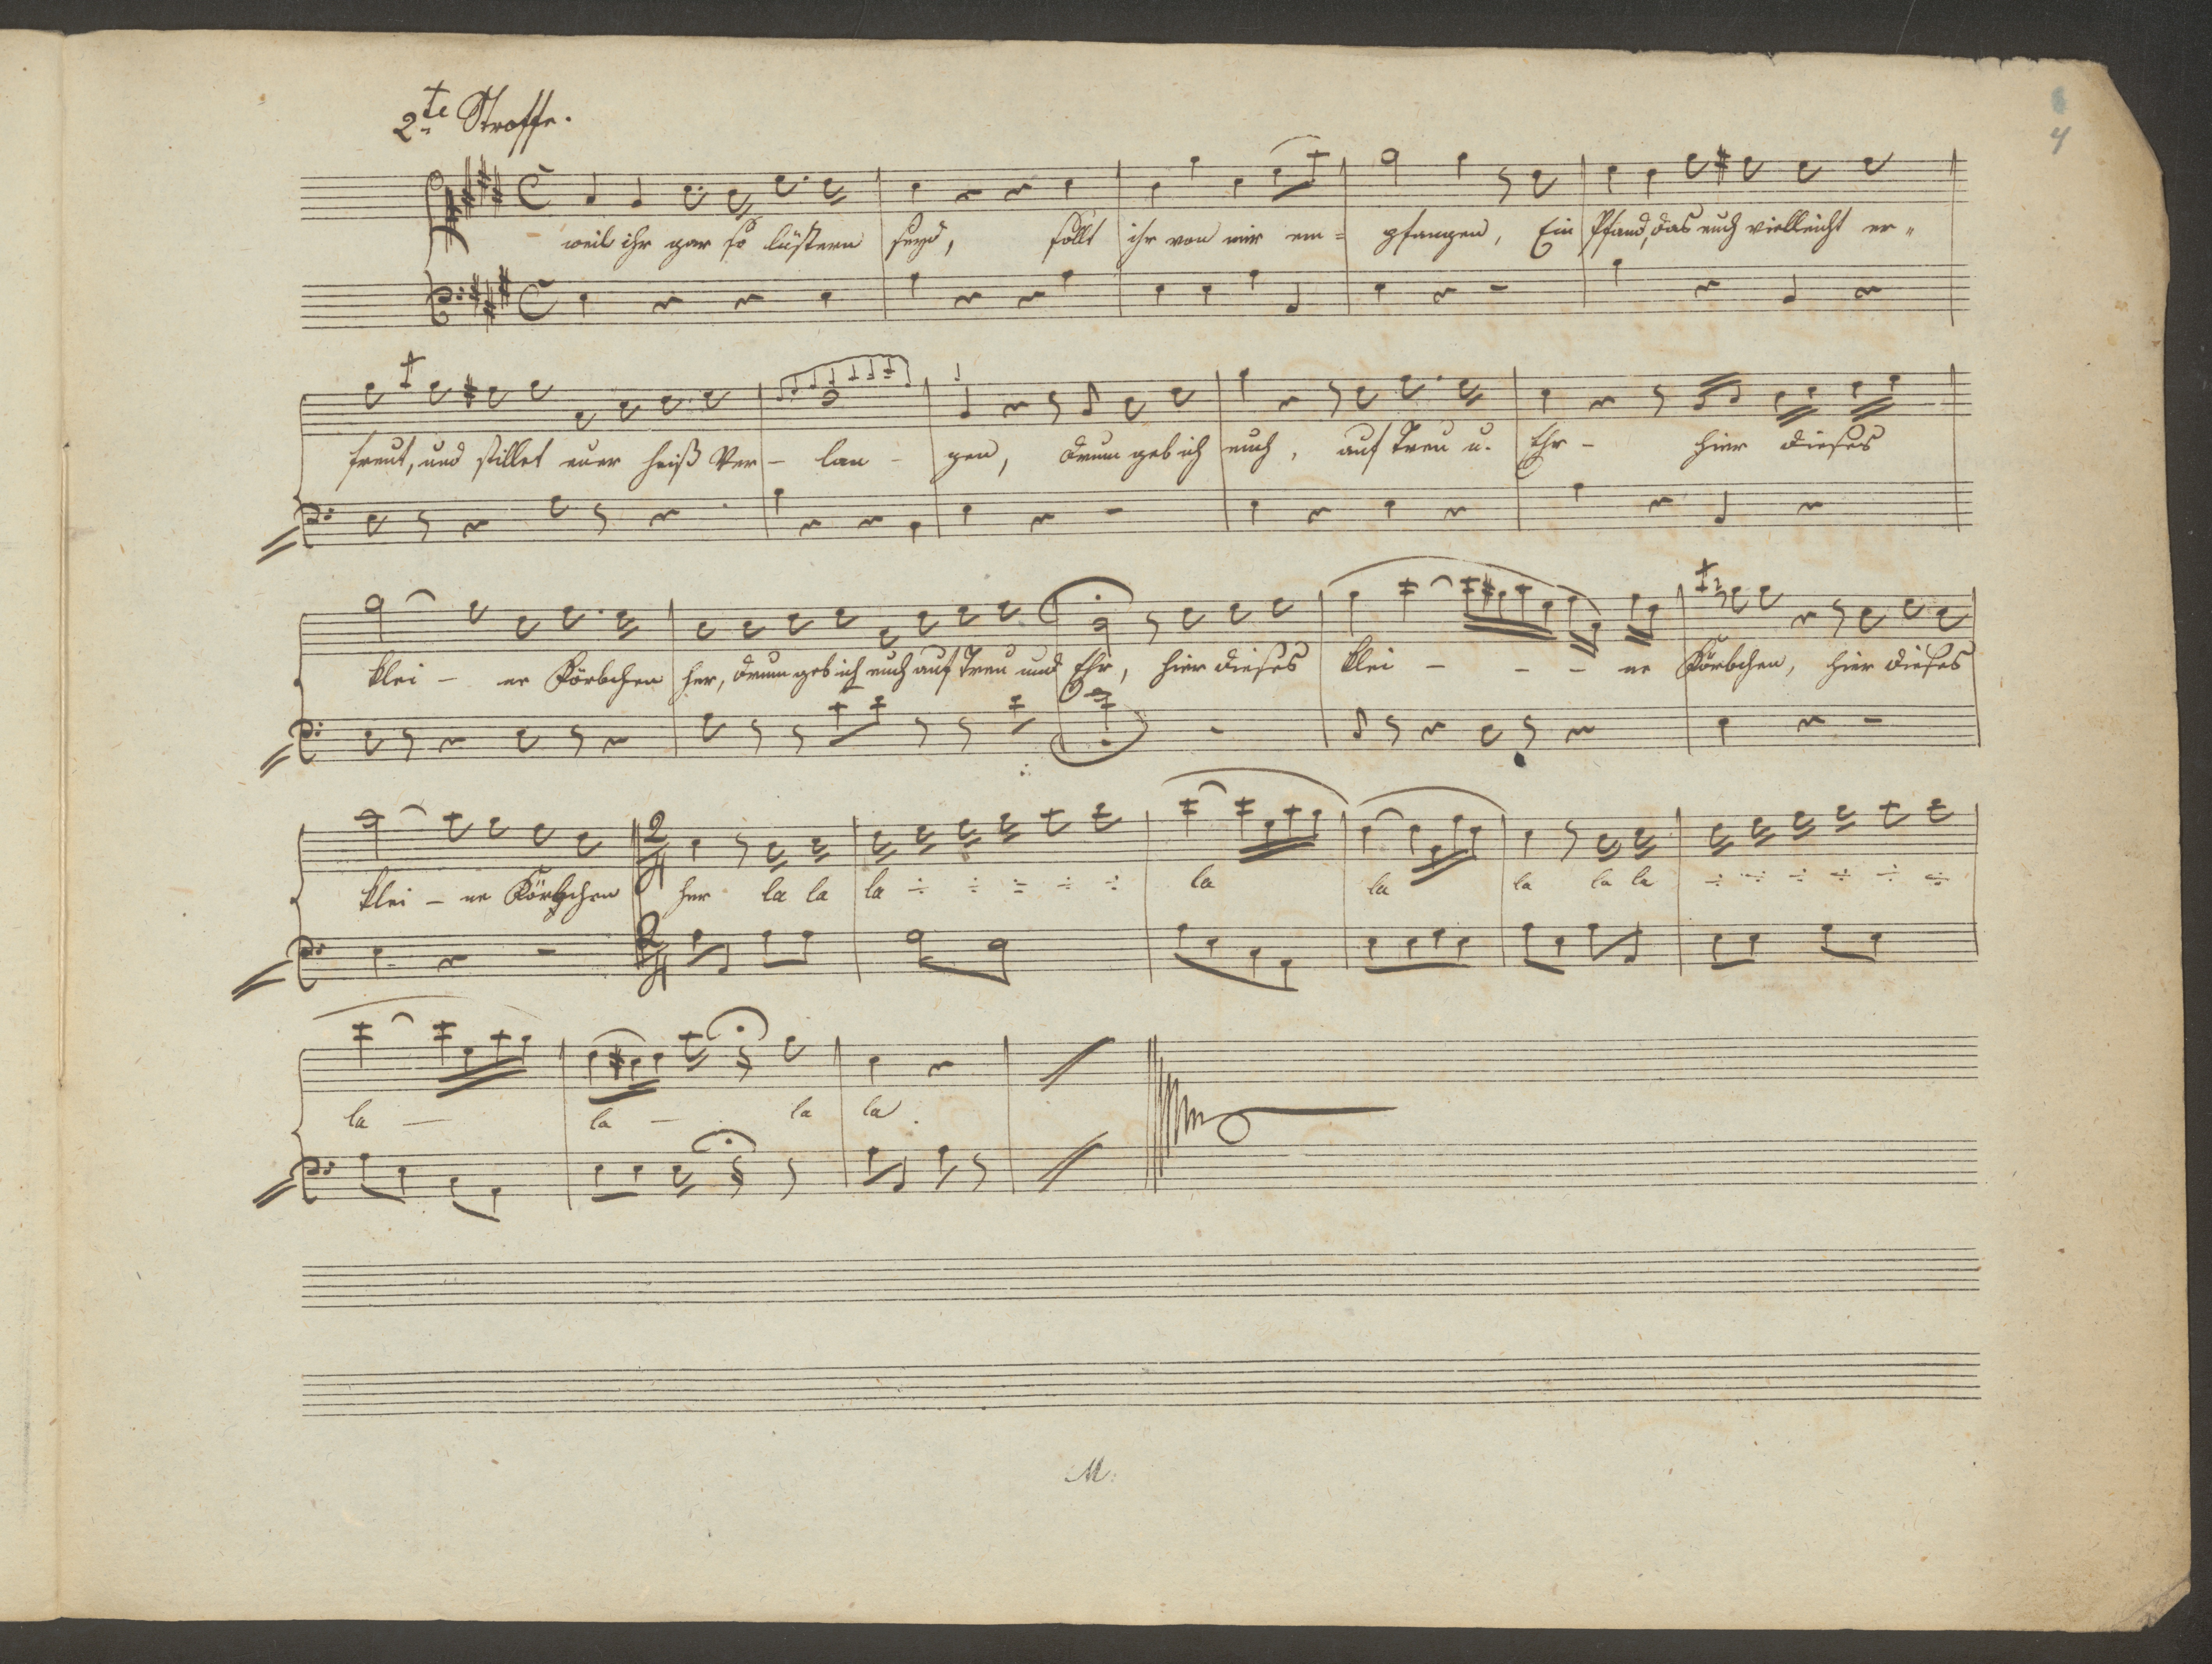 4
2te Stroffe.
weil ihr gar so lüstern seyd, sollt ihr von mir em= pfangen, Ein Pfand, das euch vielleicht er=
freut, und stillet euer heiß Ver- lan - gen, drum geb ich euch, auf Treu u. Ehr - hier dieses
klei - ne Körbchen her, drum geb ich euch auf Treu und Ehr, hier dieses klei - - - ne Körbchen, hier dieses
klei - ne Körbchen her la la la ÷ ÷ ÷ ÷ ÷ la la la la la ÷ ÷ ÷ ÷ ÷ ÷
la — la — la la.
M.